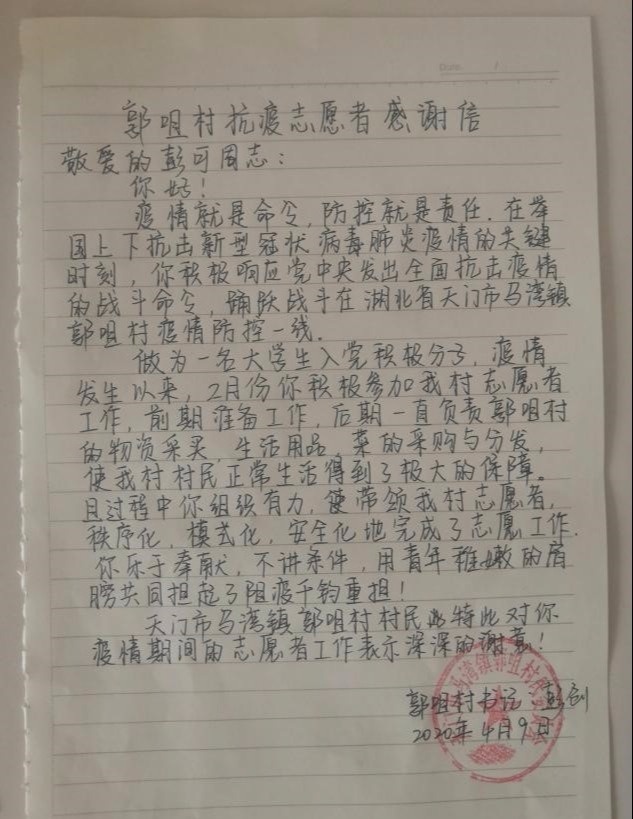 Date. /
郭咀村抗疫志愿者感谢信
敬爱的彭可周志：
你好！
疫情就是命令，防控就是责任．在举
国上下抗击新型冠状病毒肺炎疫情的关键
时刻，你积极响应党中央发出全面抗击疫情
的战斗命令，踊跃战斗在湖北省天门市马湾镇
郭咀村疫情防控一线．
做为一名大学生入党积极分子，疫情
发生以来，2月份你积极参加我村志愿者
工作，前期准备工作，后期一直负责郭咀村
的物资采买，生活用品，菜的采购与分发，
使我村村民正常生活得到了极大的保障。
且过程中你组织有力，带领我村志愿者，
秩序化，模式化，安全化地完成了志愿工作．
你乐于奉献，不讲条件，用青年稚嫩的肩
膀共同担起了阻疫千钧重担！
天门市马湾镇郭咀村村民特此对你
疫情期间的志愿者工作表示深深的谢意！
郭咀村书记
2020年4月9日
湾镇郭咀村